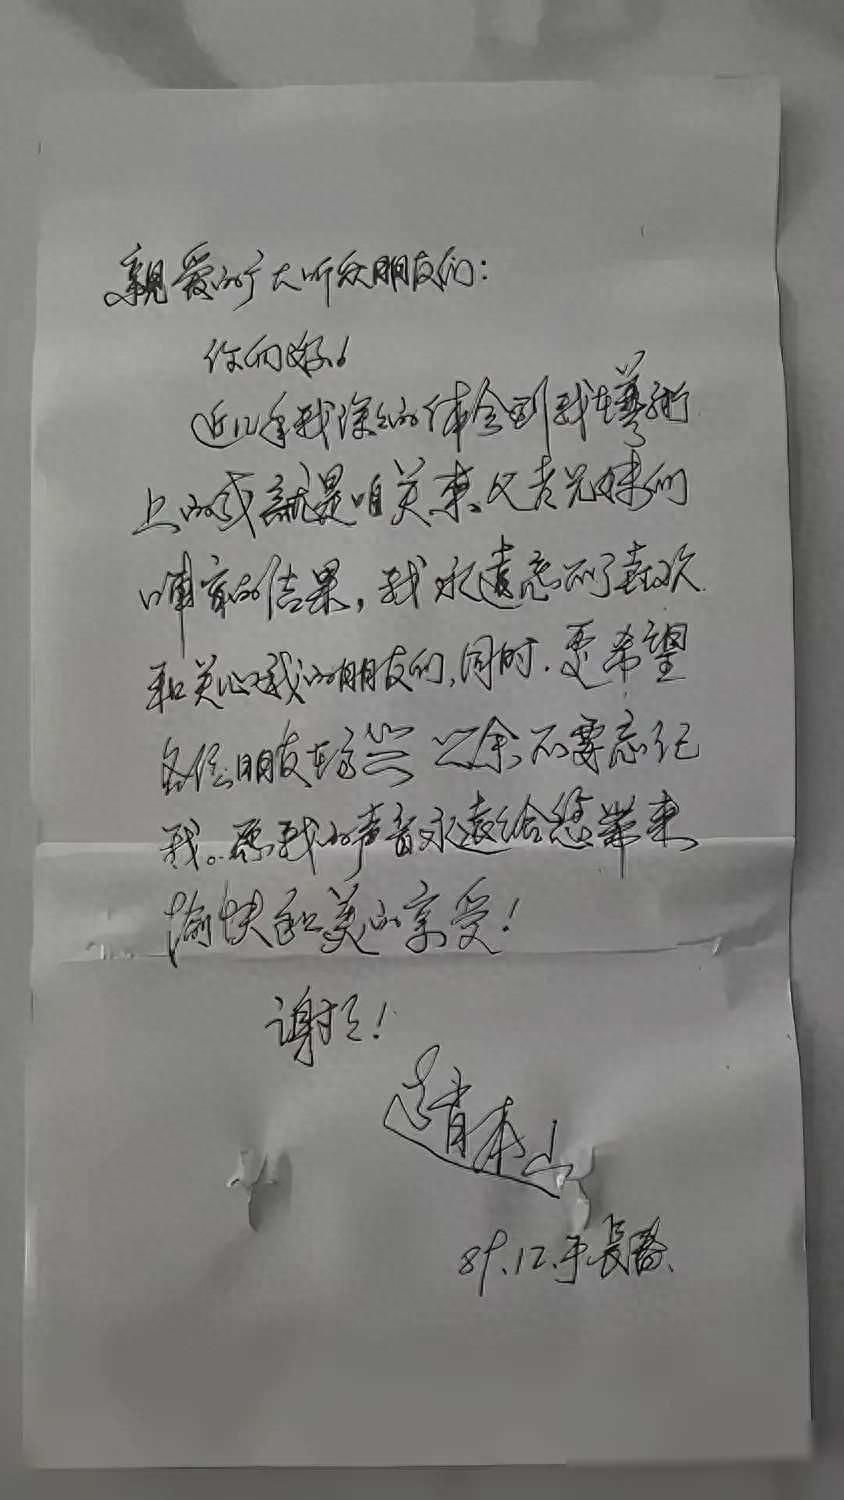 親爱的广大听众朋友们：
你们好！
近几年我深深的体会到我在藝術
上的成就是咱关東父老兄妹们
哺育的结果，我永遠忘不了喜欢
和关心我的朋友们，同时，更希望
各位朋友在言笑之余不要忘记
我。愿我的声音永遠给您带来
愉快和美的享受！
谢谢！
赵本山
89.12.于長春